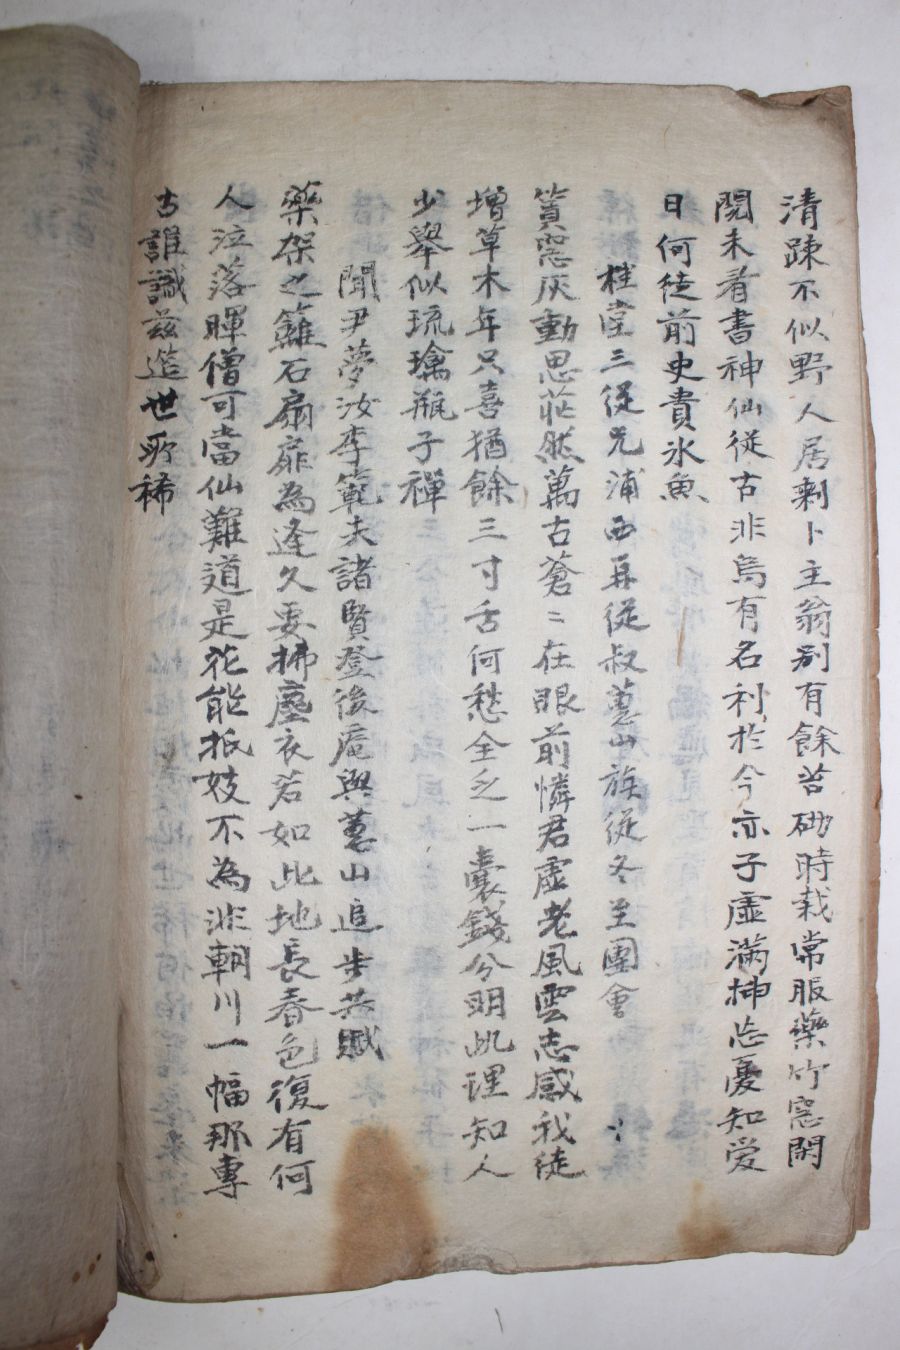 清踈不似野人居剩卜主翁别有餘苔砌時栽常服藥竹窓閑
閱未看書神仙從古非烏有名利於今亦子虛滿揷忘憂知爱
日何徒前史貴氷魚
桂堂三從兄浦西再從叔蕙山族從冬至團會
篔窓灰動思茫然萬古蒼〻在眼前憐君虛老風雲志感我徒
增草木年只喜猶餘三寸舌何愁全乏一囊錢分明此理知人
少擧似琉璃瓶子禪
聞尹夢汝李範夫諸賢登後庵與蕙山追步共賦
藥架之籬石扇扉為逢久要拂塵衣若如此地長春色復有何
人泣落暉僧可當仙難道是花能抵妓不為非輞川一幅那專
古誰識玆造世所稀